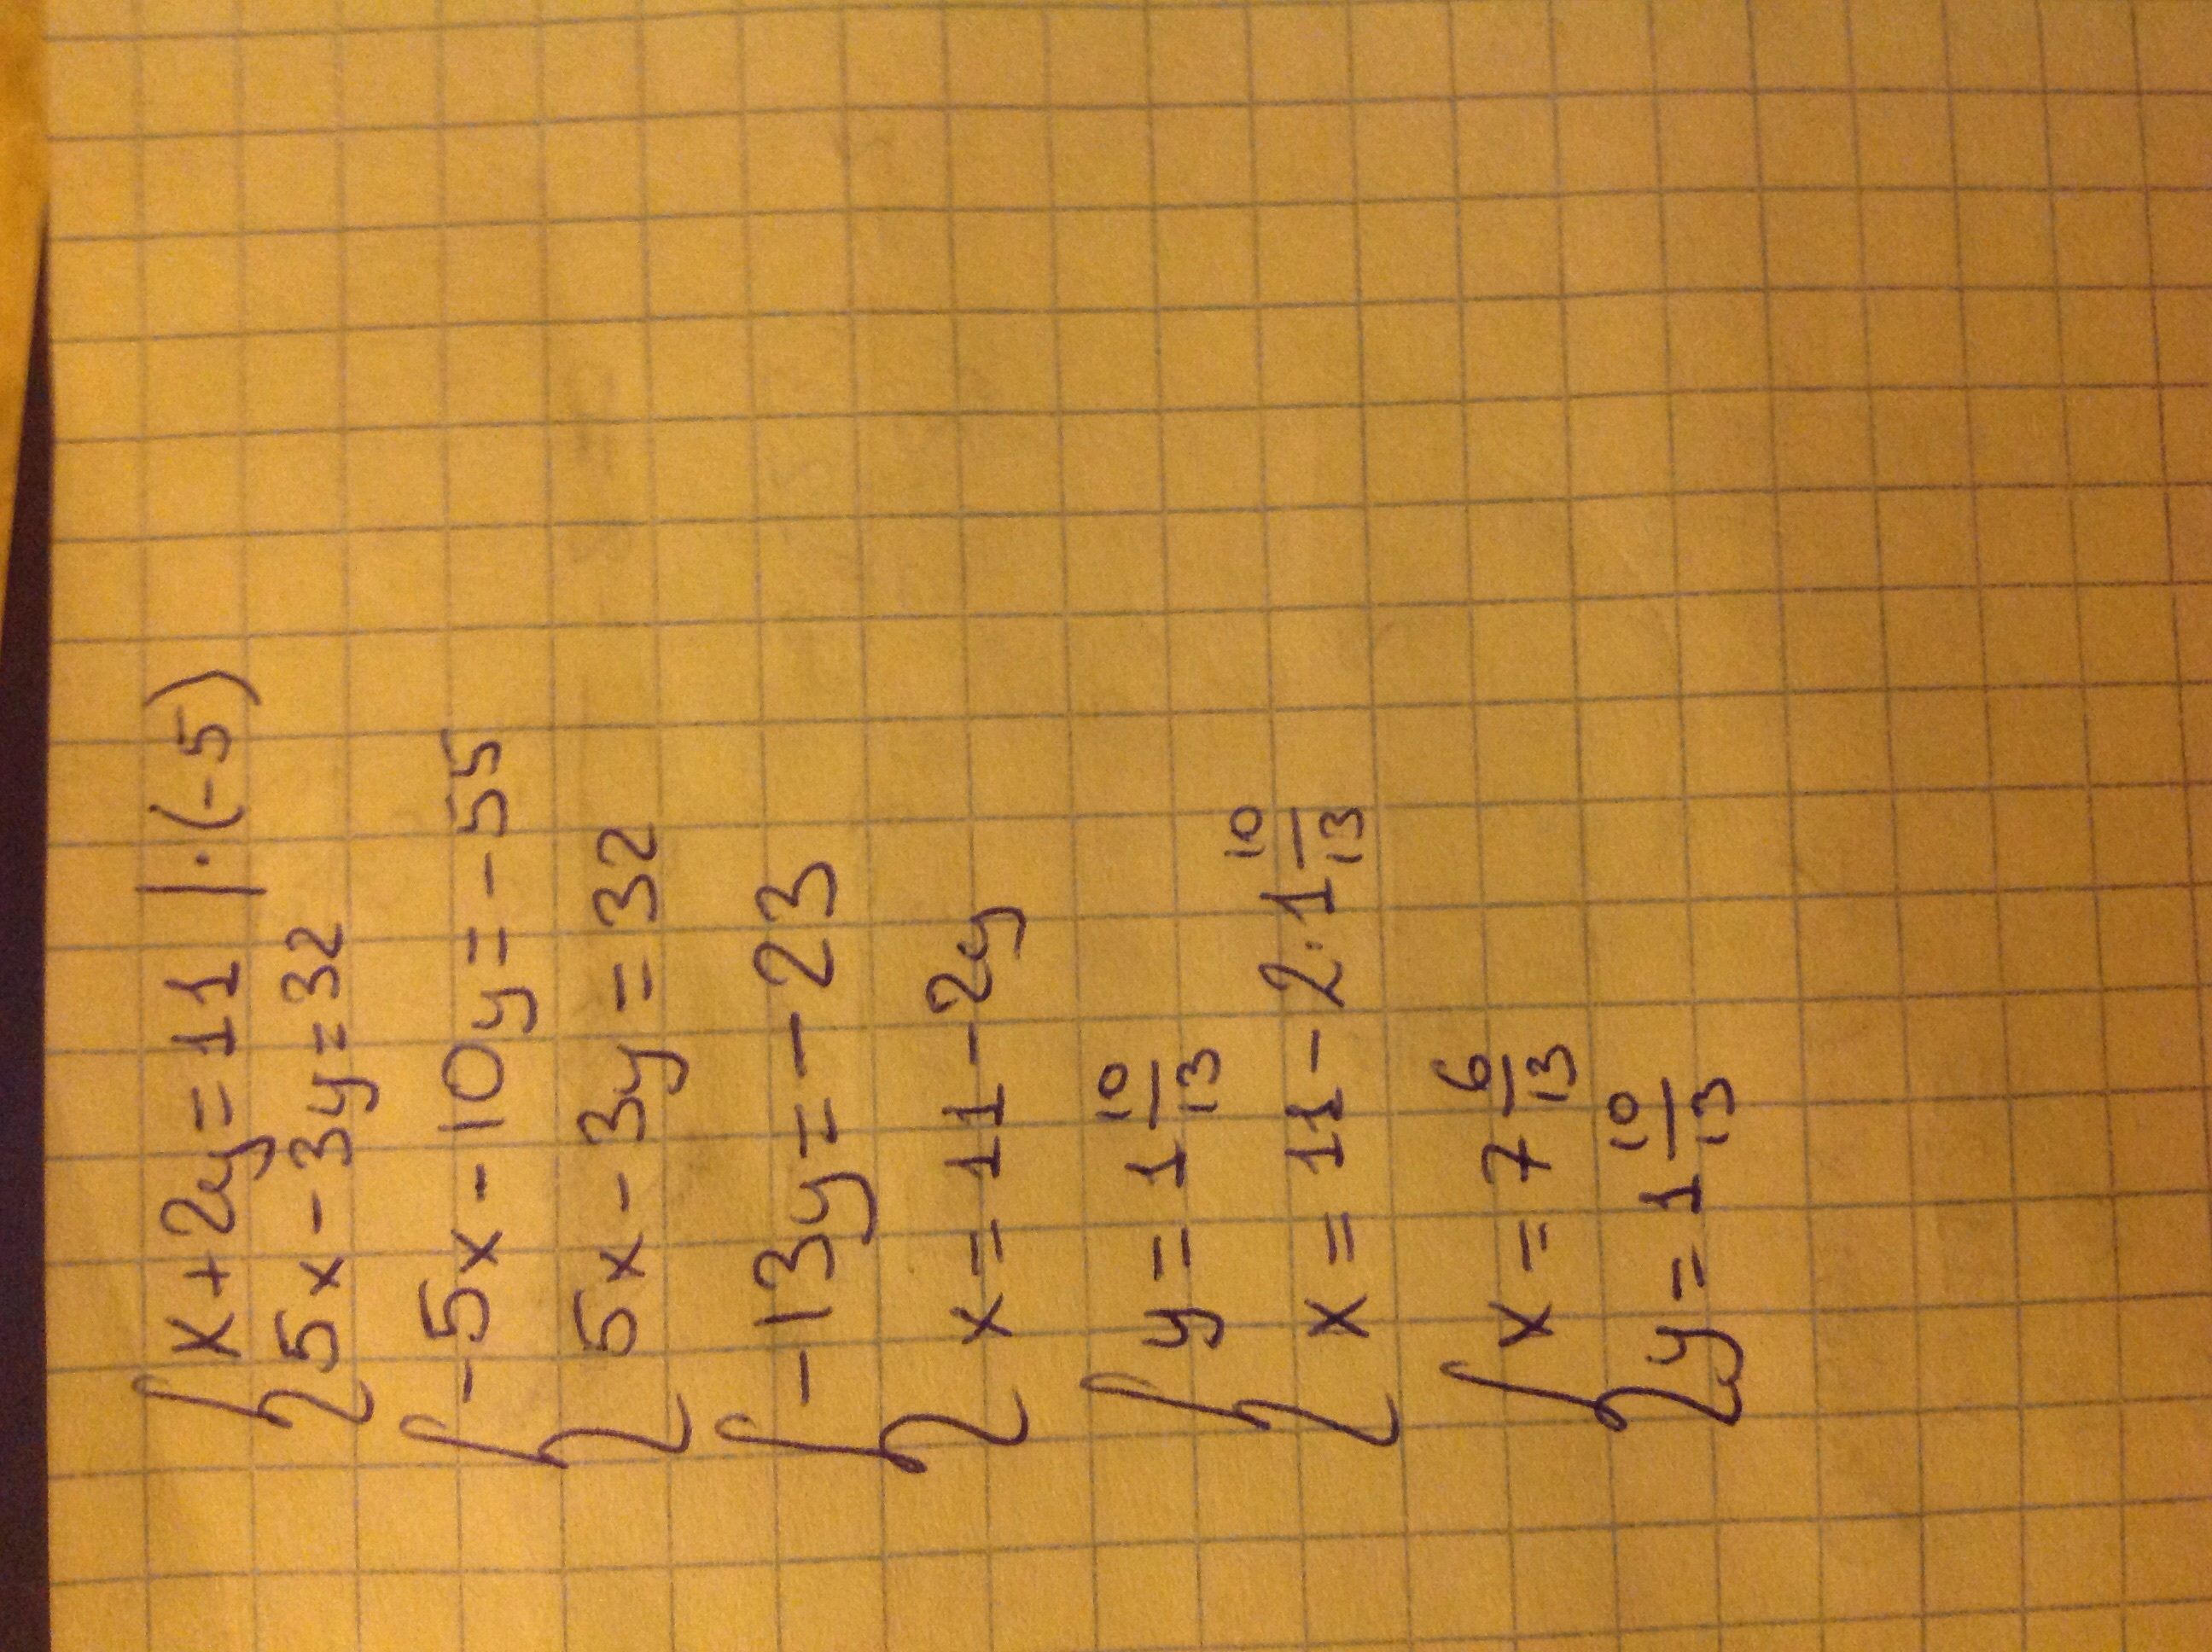 x+2y=11 |·(-5)
5x-3y=32
-5x-10y=-55
5x-3y=32
-13y=-23
x=11-2y
y=1 10/13
x=11-2·1 10/13
x=7 6/13
y=1 10/13